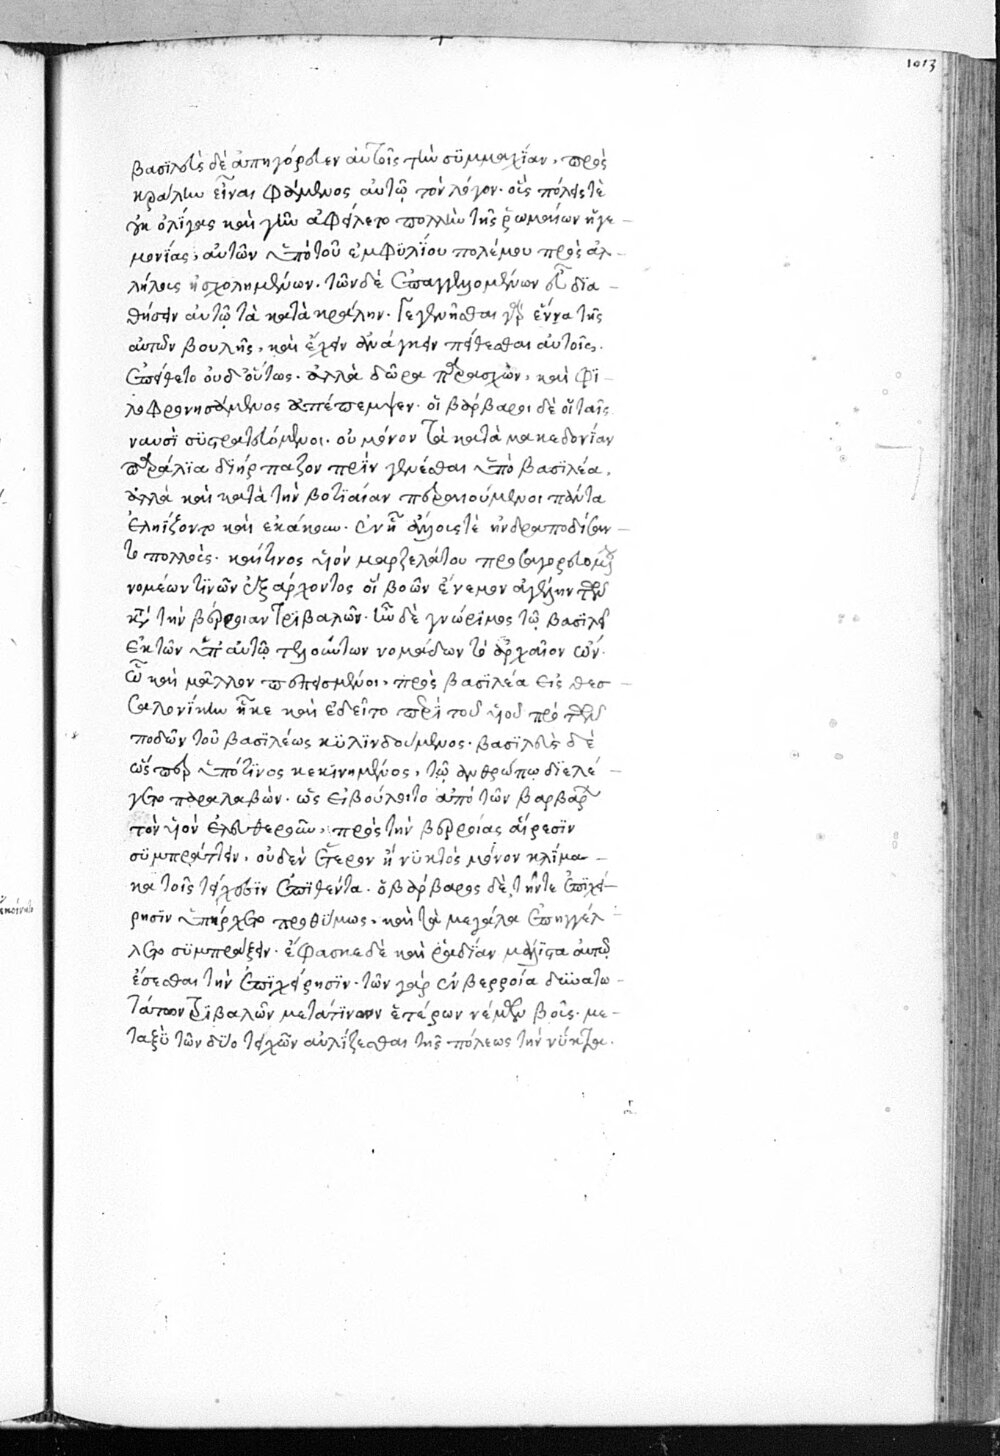 1013
βασιλεὺς δὲ ἀπηγόρευεν αὐτοῖς τὴν συμμαχίαν, πρὸς
κράλην εἶναι φάμενος αὐτῷ τὸν λόγον. ὃς πόλεις τὲ
οὐκ ὀλίγας καὶ γῆν ἀφείλετο πολλὴν τῆς ῥωμαίων ἡγε-
μονίας, αὐτῶν ὑπὸ τοῦ ἐμφυλίου πολέμου πρὸς ἀλ-
λήλους ἠσχολημένων. τῶν δὲ ἐπαγγελομένων εὖ δια-
θήσειν αὐτῷ τὰ κατὰ κράλην. γεγενῆσθαι γὰρ ἕνα τῆς
αὐτῶν βουλῆς, καὶ ἔχειν ἀνάγκην πείθεσθαι αὐτοῖς.
ἐπείθετο οὐδ οὕτως. ἀλλὰ δῶρα παρασχὼν, καὶ φι-
λοφρονησάμενος ἀπέπεμψεν. οἱ βάρβαροι δὲ οἱ ταῖς
ναυσὶ συστρατευόμενοι. οὐ μόνον τὰ κατὰ μακεδονίαν
παράλια διήρπαζον πρὶν γενέσθαι ὑπὸ βασιλέα,
ἀλλὰ καὶ κατὰ τὴν βοτιαίαν περαιούμενοι πάντα
ἐληίζοντο καὶ ἐκάκουν. ἐν ᾗ ἄλλους τὲ ἠνδραποδίσαν-
το πολλοὺς. καί τινος υἱὸν μαρζελάτου προσαγορευομένου
νομέων τινῶν ἐξάρχοντος οἳ βοῶν ἔνεμον ἀγέλην τῶν
κατὰ τὴν βέρροιαν τριβαλῶν. ὃς δὲ γνώριμος τῷ βασιλεῖ
ἐκ τῶν ὑπ αὐτῷ τελούντων νομάδων τὸ ἀρχαῖον ὤν.
ᾧ καὶ μᾶλλον πεπεισμένοι, πρὸς βασιλέα εἰς θεσ-
σαλονίκην ἧκε καὶ ἐδεῖτο περὶ τοῦ υἱοῦ πρὸ τῶν
ποδῶν τοῦ βασιλέως κυλινδούμενος. βασιλεὺς δὲ
ὥσπερ ὑπό τινος κεκινημένος, τῷ ἀνθρώπῳ διελέ-
γετο παραλαβών. ὡς εἰ βούλοιτο ἀπὸ τῶν βαρβάρων
τὸν υἱὸν ἐλευθεροῦν, πρὸς τὴν βερροίας αἵρεσιν
συμπράττειν, οὐδὲν ἕτερον ἢ νυκτὸς μόνον κλίμα-
κα τοῖς τείχεσιν ἐπιθέντα. ὁ βάρβαρος δὲ τήν τε ἐπιχεί-
ρησιν ὑπήρχετο προθύμως, καὶ τὰ μεγάλα ἐπηγγέλ-
λετο συμπράξειν. ἔφασκε δὲ καὶ ῥᾳδίαν μάλιστα αὐτῷ
ἔσεσθαι τὴν ἐπιχείρησιν. τῶν γὰρ ἐν βερροίᾳ δυνατω-
τάτων τριβαλῶν μετά τινων ἑτέρων νέμειν βοῦς. με-
ταξὺ τῶν δύο τειχῶν αὐλίζεσθαι τῆς πόλεως τὴν νύκτα.